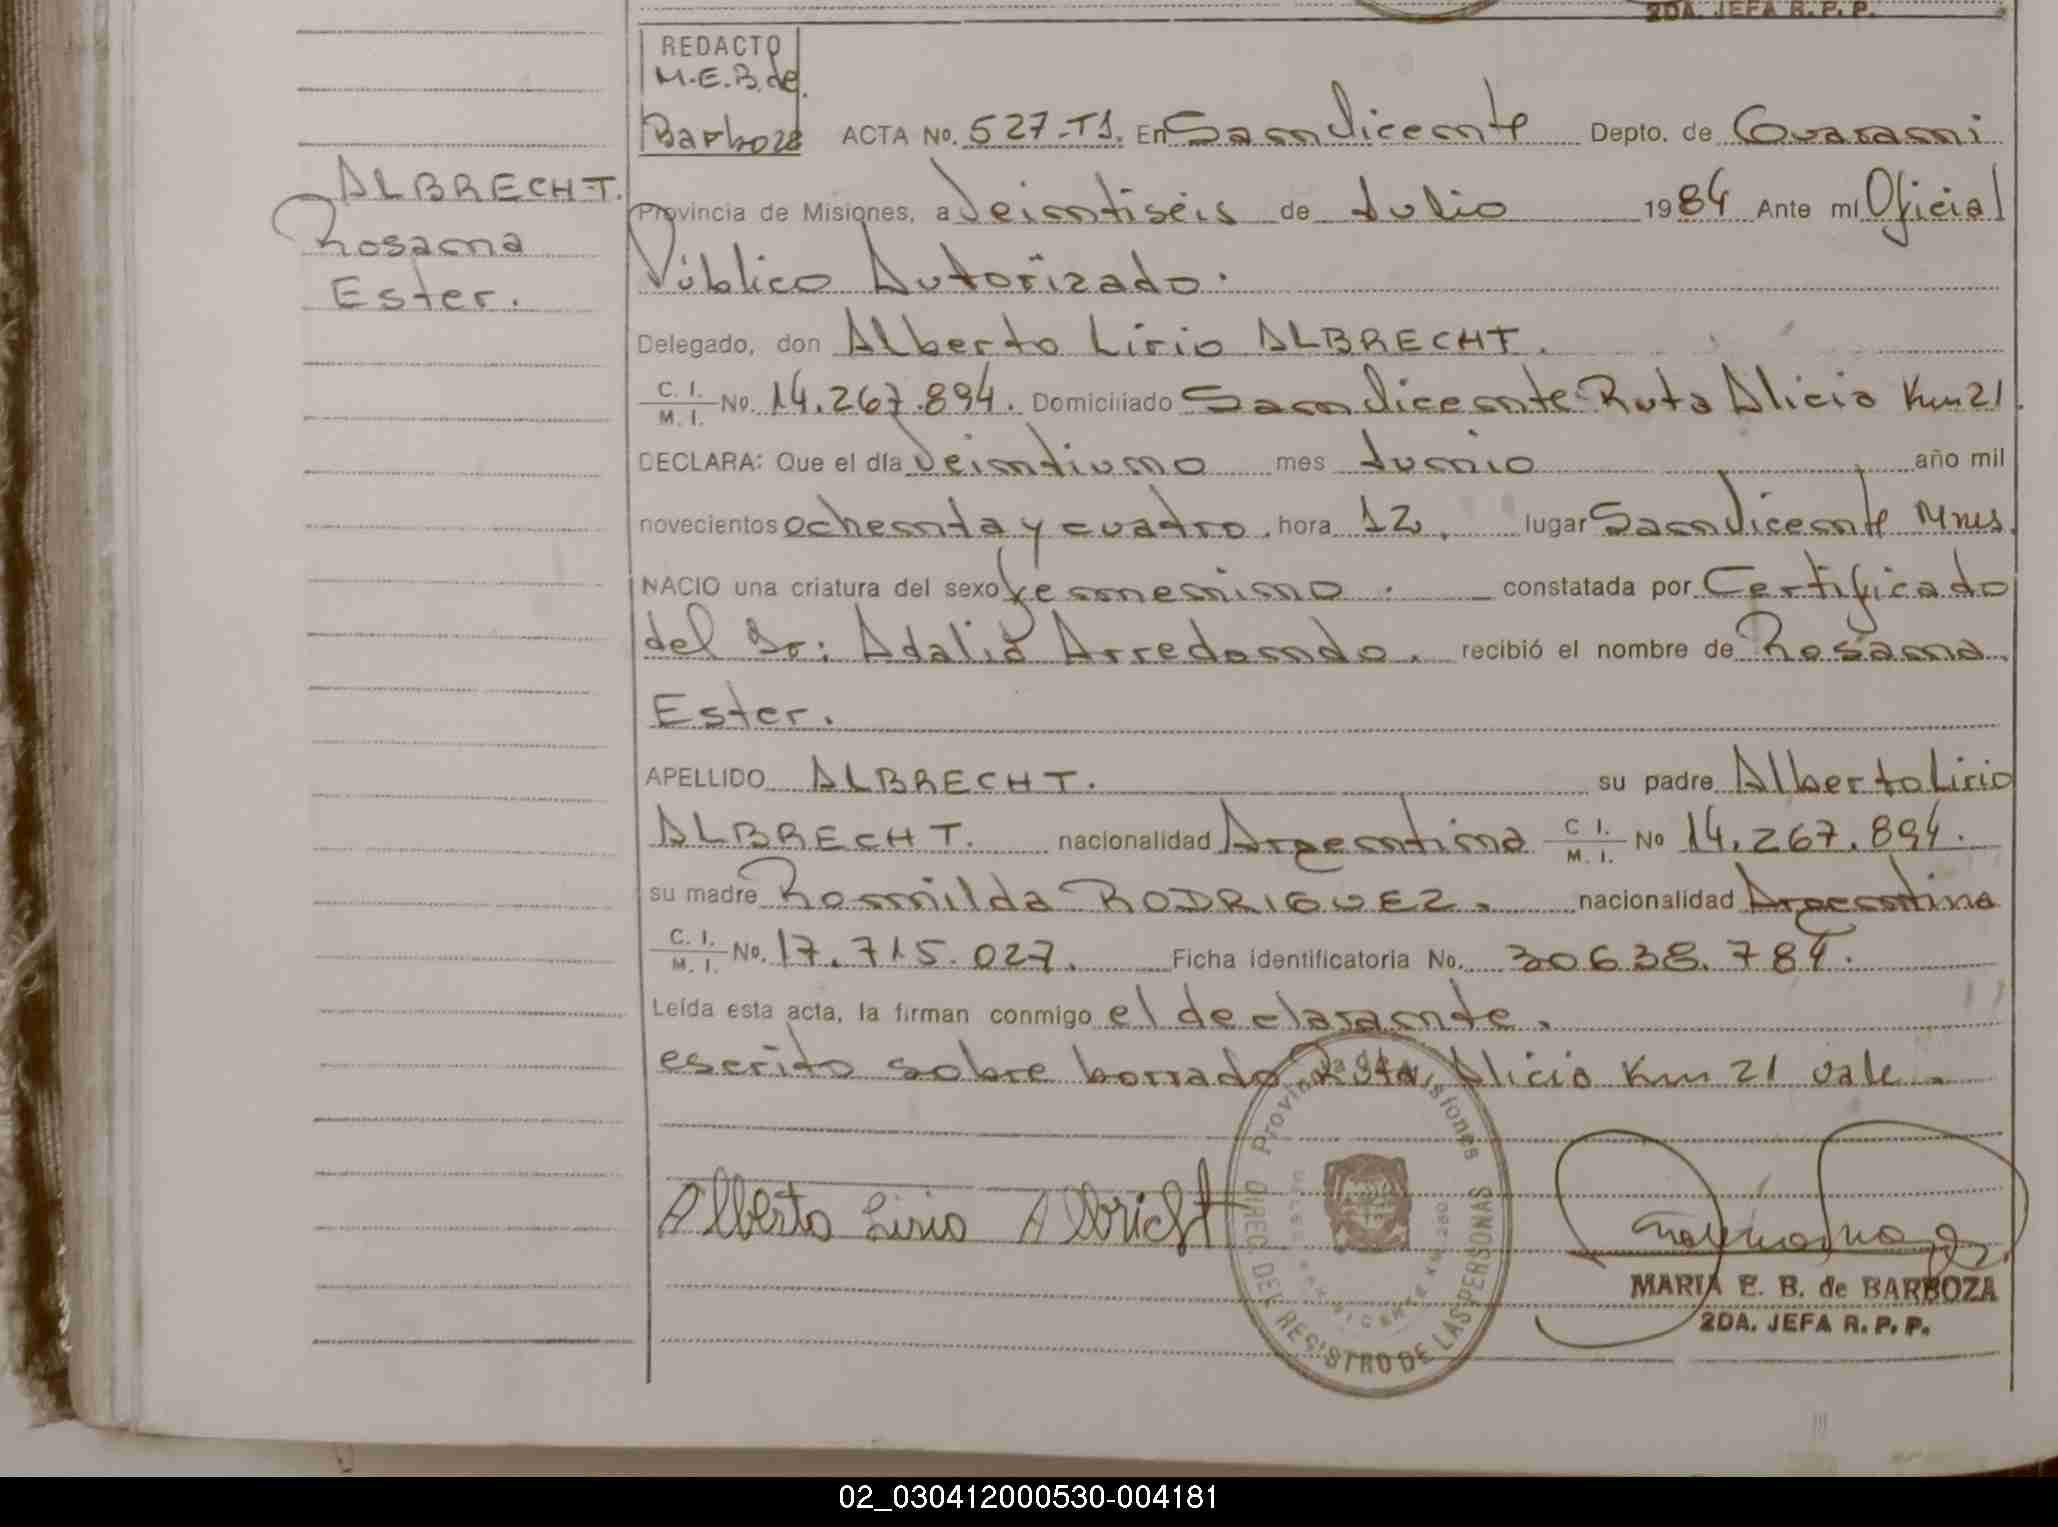 2DA. JEFA R. P. P.
REDACTO
M.E.B. de
Barboza
ACTA No. 527-T1. En San Vicente Depto. de Guarani
ALBRECHT.
Rosana
Ester.
Provincia de Misiones, a Veintiseis de Julio 1984 Ante mi Oficial
Público Autorizado.
Delegado, don Alberto Lirio ALBRECHT.
C. I. / M. I. No. 14.267.894. Domiciliado San Vicente Ruta Alicia Km 21.
DECLARA: Que el día Veintiuno mes Junio año mil
novecientos ochenta y cuatro. hora 12. lugar San Vicente Mnes.
NACIO una criatura del sexo femenino. constatada por Certificado
del Sr: Adalid Arredondo. recibió el nombre de Rosana
Ester.
APELLIDO ALBRECHT. su padre Alberto Lirio
ALBRECHT. nacionalidad Argentina C I. / M. I. No 14.267.894.
su madre Romilda RODRIGUEZ. nacionalidad Argentina
C. I. / M. I. No. 17.715.027. Ficha identificatoria No. 30638.784.
Leída esta acta, la firman conmigo el declarante.
escrito sobre borrado Ruta Alicia Km 21 vale.
Alberto Lirio Albricht
Provincia de Misiones
DIREC. DEL REGISTRO DE LAS PERSONAS
MARIA E. B. de BARBOZA
2DA. JEFA R. P. P.
02_030412000530-004181